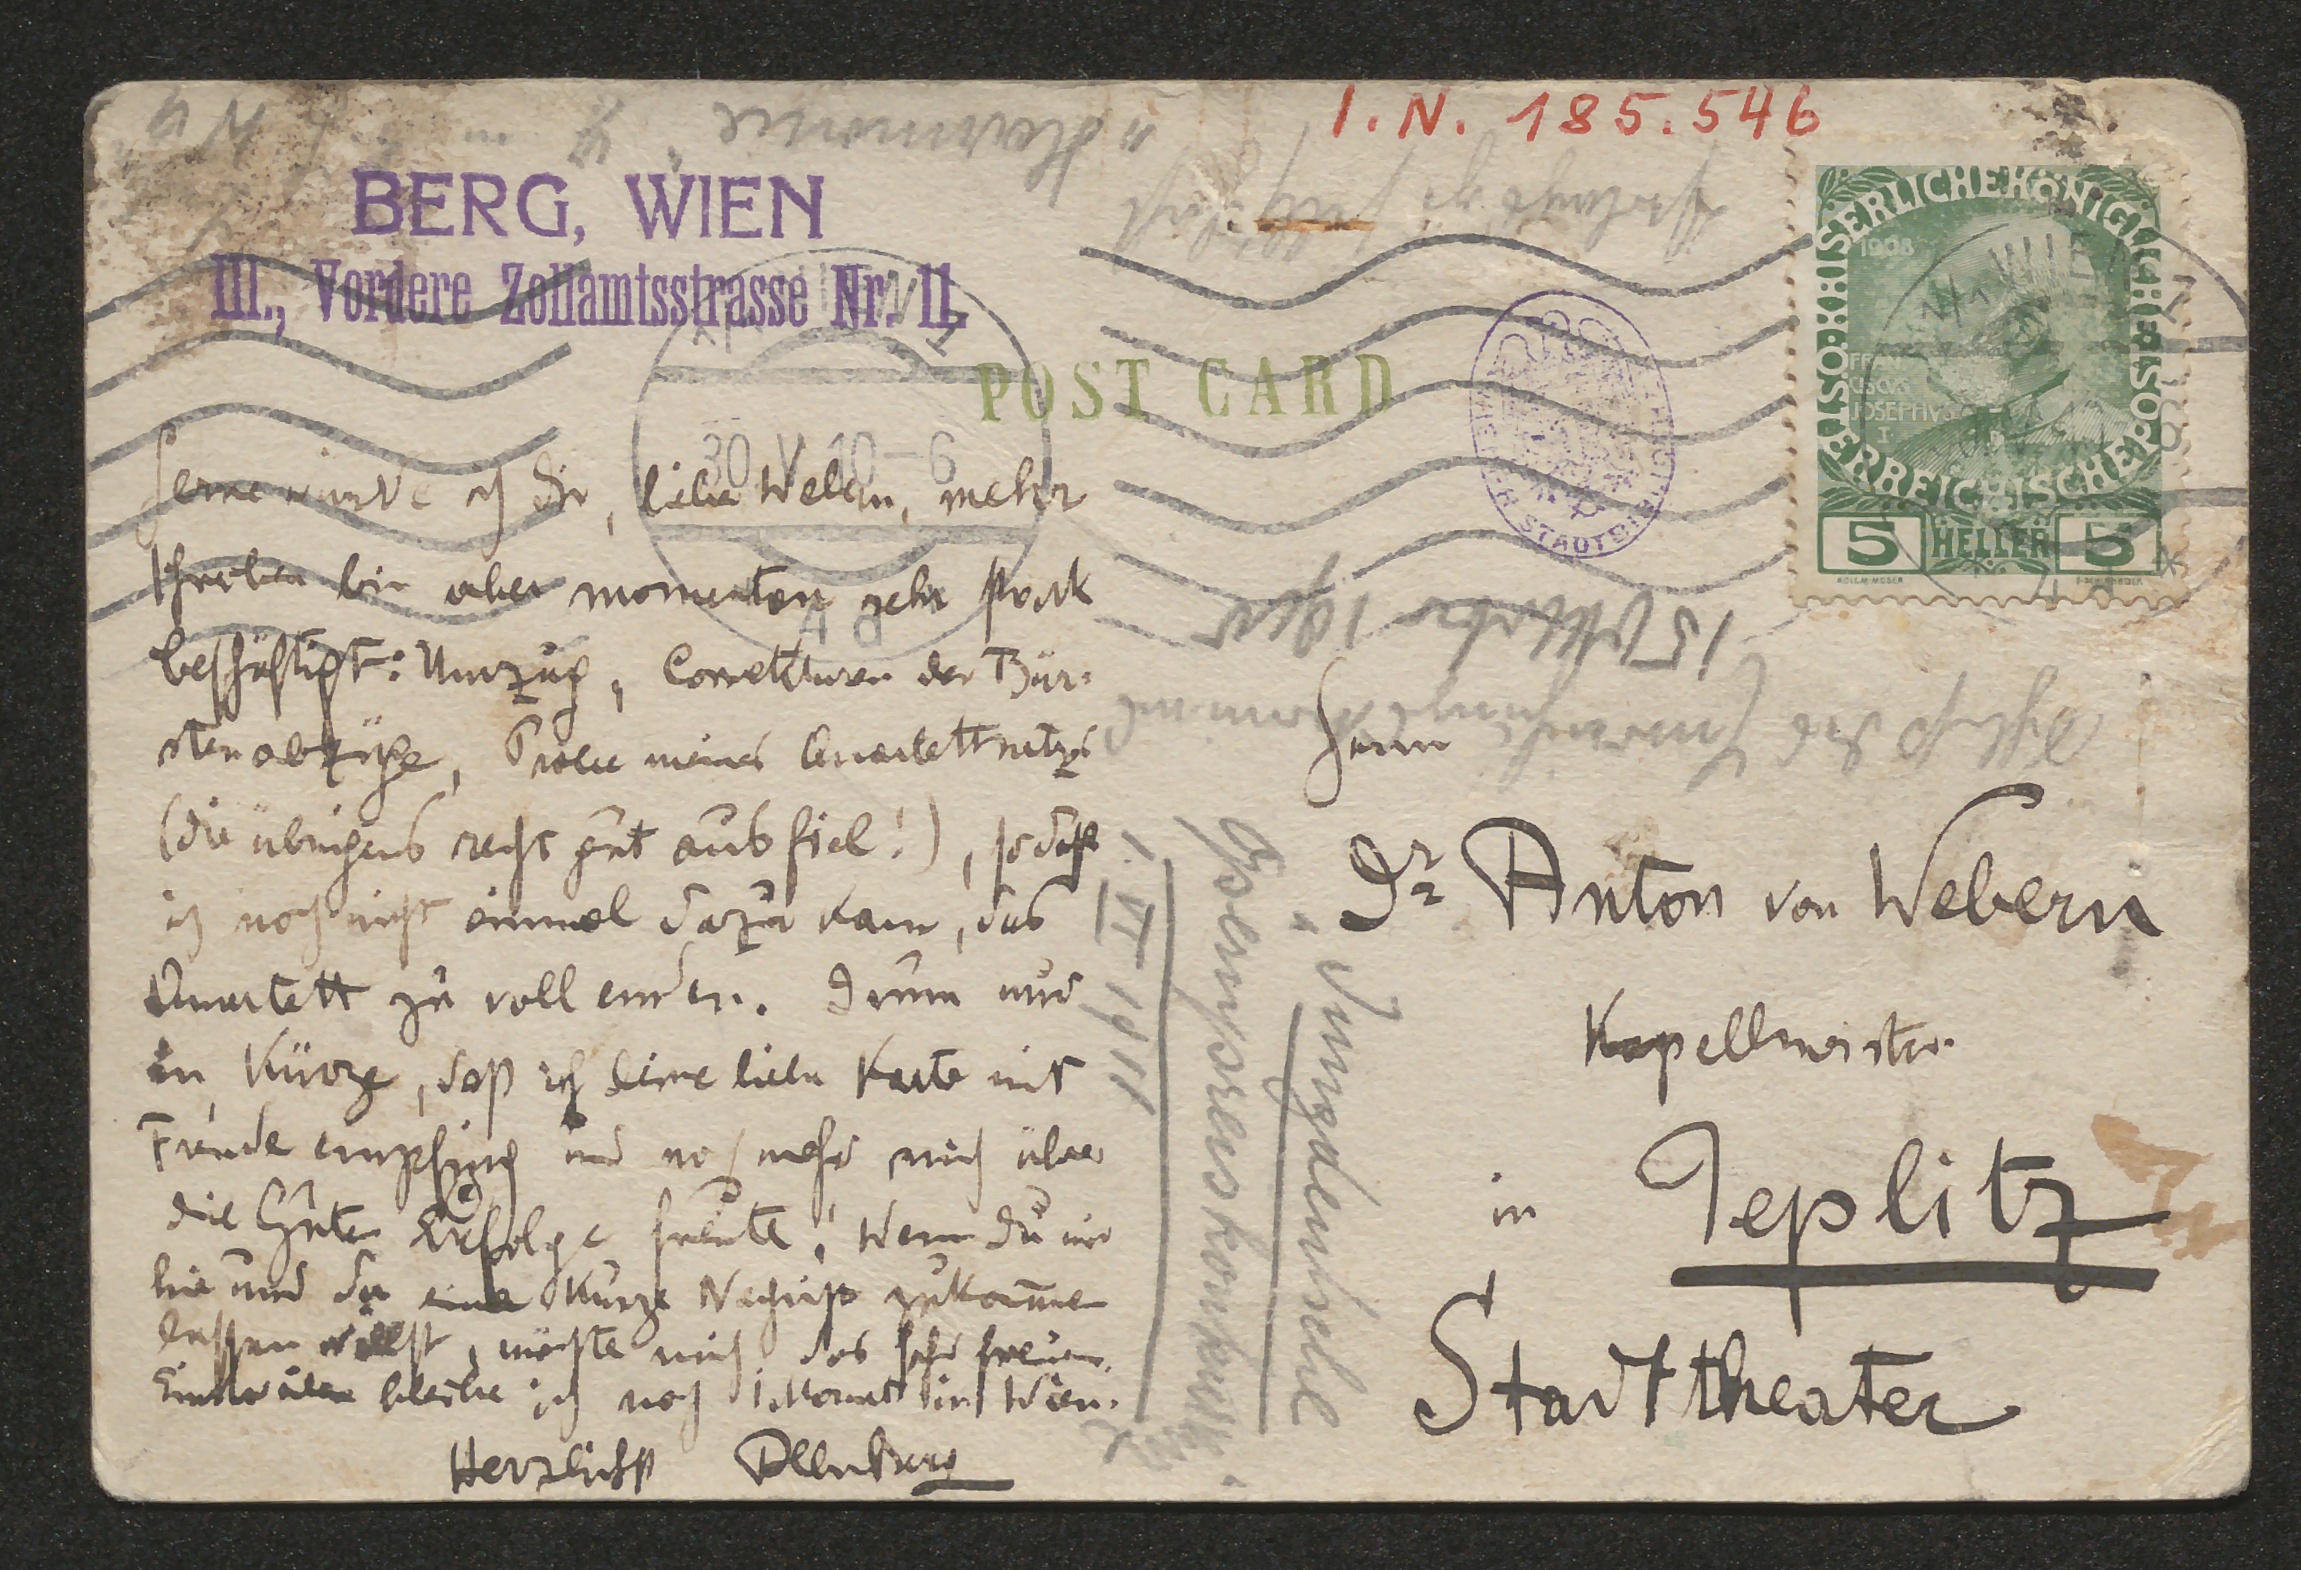 I.N. 185.546
BERG, WIEN
III., Vordere Zollamtsstrasse Nr. 11.
POST CARD
30 V 10-6
1908
FRAN
CISCVS
IOSEPHVS
I.
KAISERLICHE KÖNIGLICHE ÖSTERREICHISCHE
5 HELLER 5
Gerne würde ich Dir, lieber Webern, mehr
schreiben bin aber momentan sehr stark
beschäftigt: Umzug, Correkturen der Bür-
stenabzüge, Probe meines Quartettsatzes
(die übrigens recht gut ausfiel!), sodaß
ich noch nicht einmal dazu kam, das
Quartett zu vollenden. Drum nur
in Kürze, daß ich Deine liebe Karte mit
Freude empfing und noch mehr mich über
die guten Erfolge freute! Wenn Du mir
hie und da eine kurze Nachricht zukommen
lassen willst, möchte mich das sehr freuen.
Einstweilen bleibe ich noch 1 Monat in Wien.
Herzlichst Alban Berg
Herrn
Dr Anton von Webern
Kapellmeister
in Teplitz
Stadttheater
15 Oktober
"Harmonie"
1. VI 1911